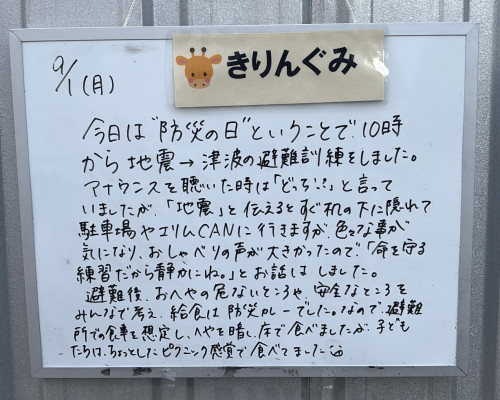 きりんぐみ
9/1(月)
今日は"防災の日"ということで、10時
から地震→津波の避難訓練をしました。
アナウンスを聴いた時は「どっち!?」と言って
いましたが、「地震」と伝えるとすぐ机の下に隠れて
駐車場やエリムCANに行きますが、色々な事が
気になり、おしゃべりの声が大きかったので、「命を守る
練習だから静かにね。」とお話はしました。
避難後、おへやの危ないところや、安全なところを
みんなで考え、給食は防災カレーでした。なので、避難
所での食事を想定し、へやを暗し、床で食べましたが、子ども
たちは、ちょっとしたピクニック感覚で食べてました